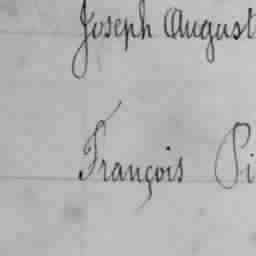 Joseph August
François Pi